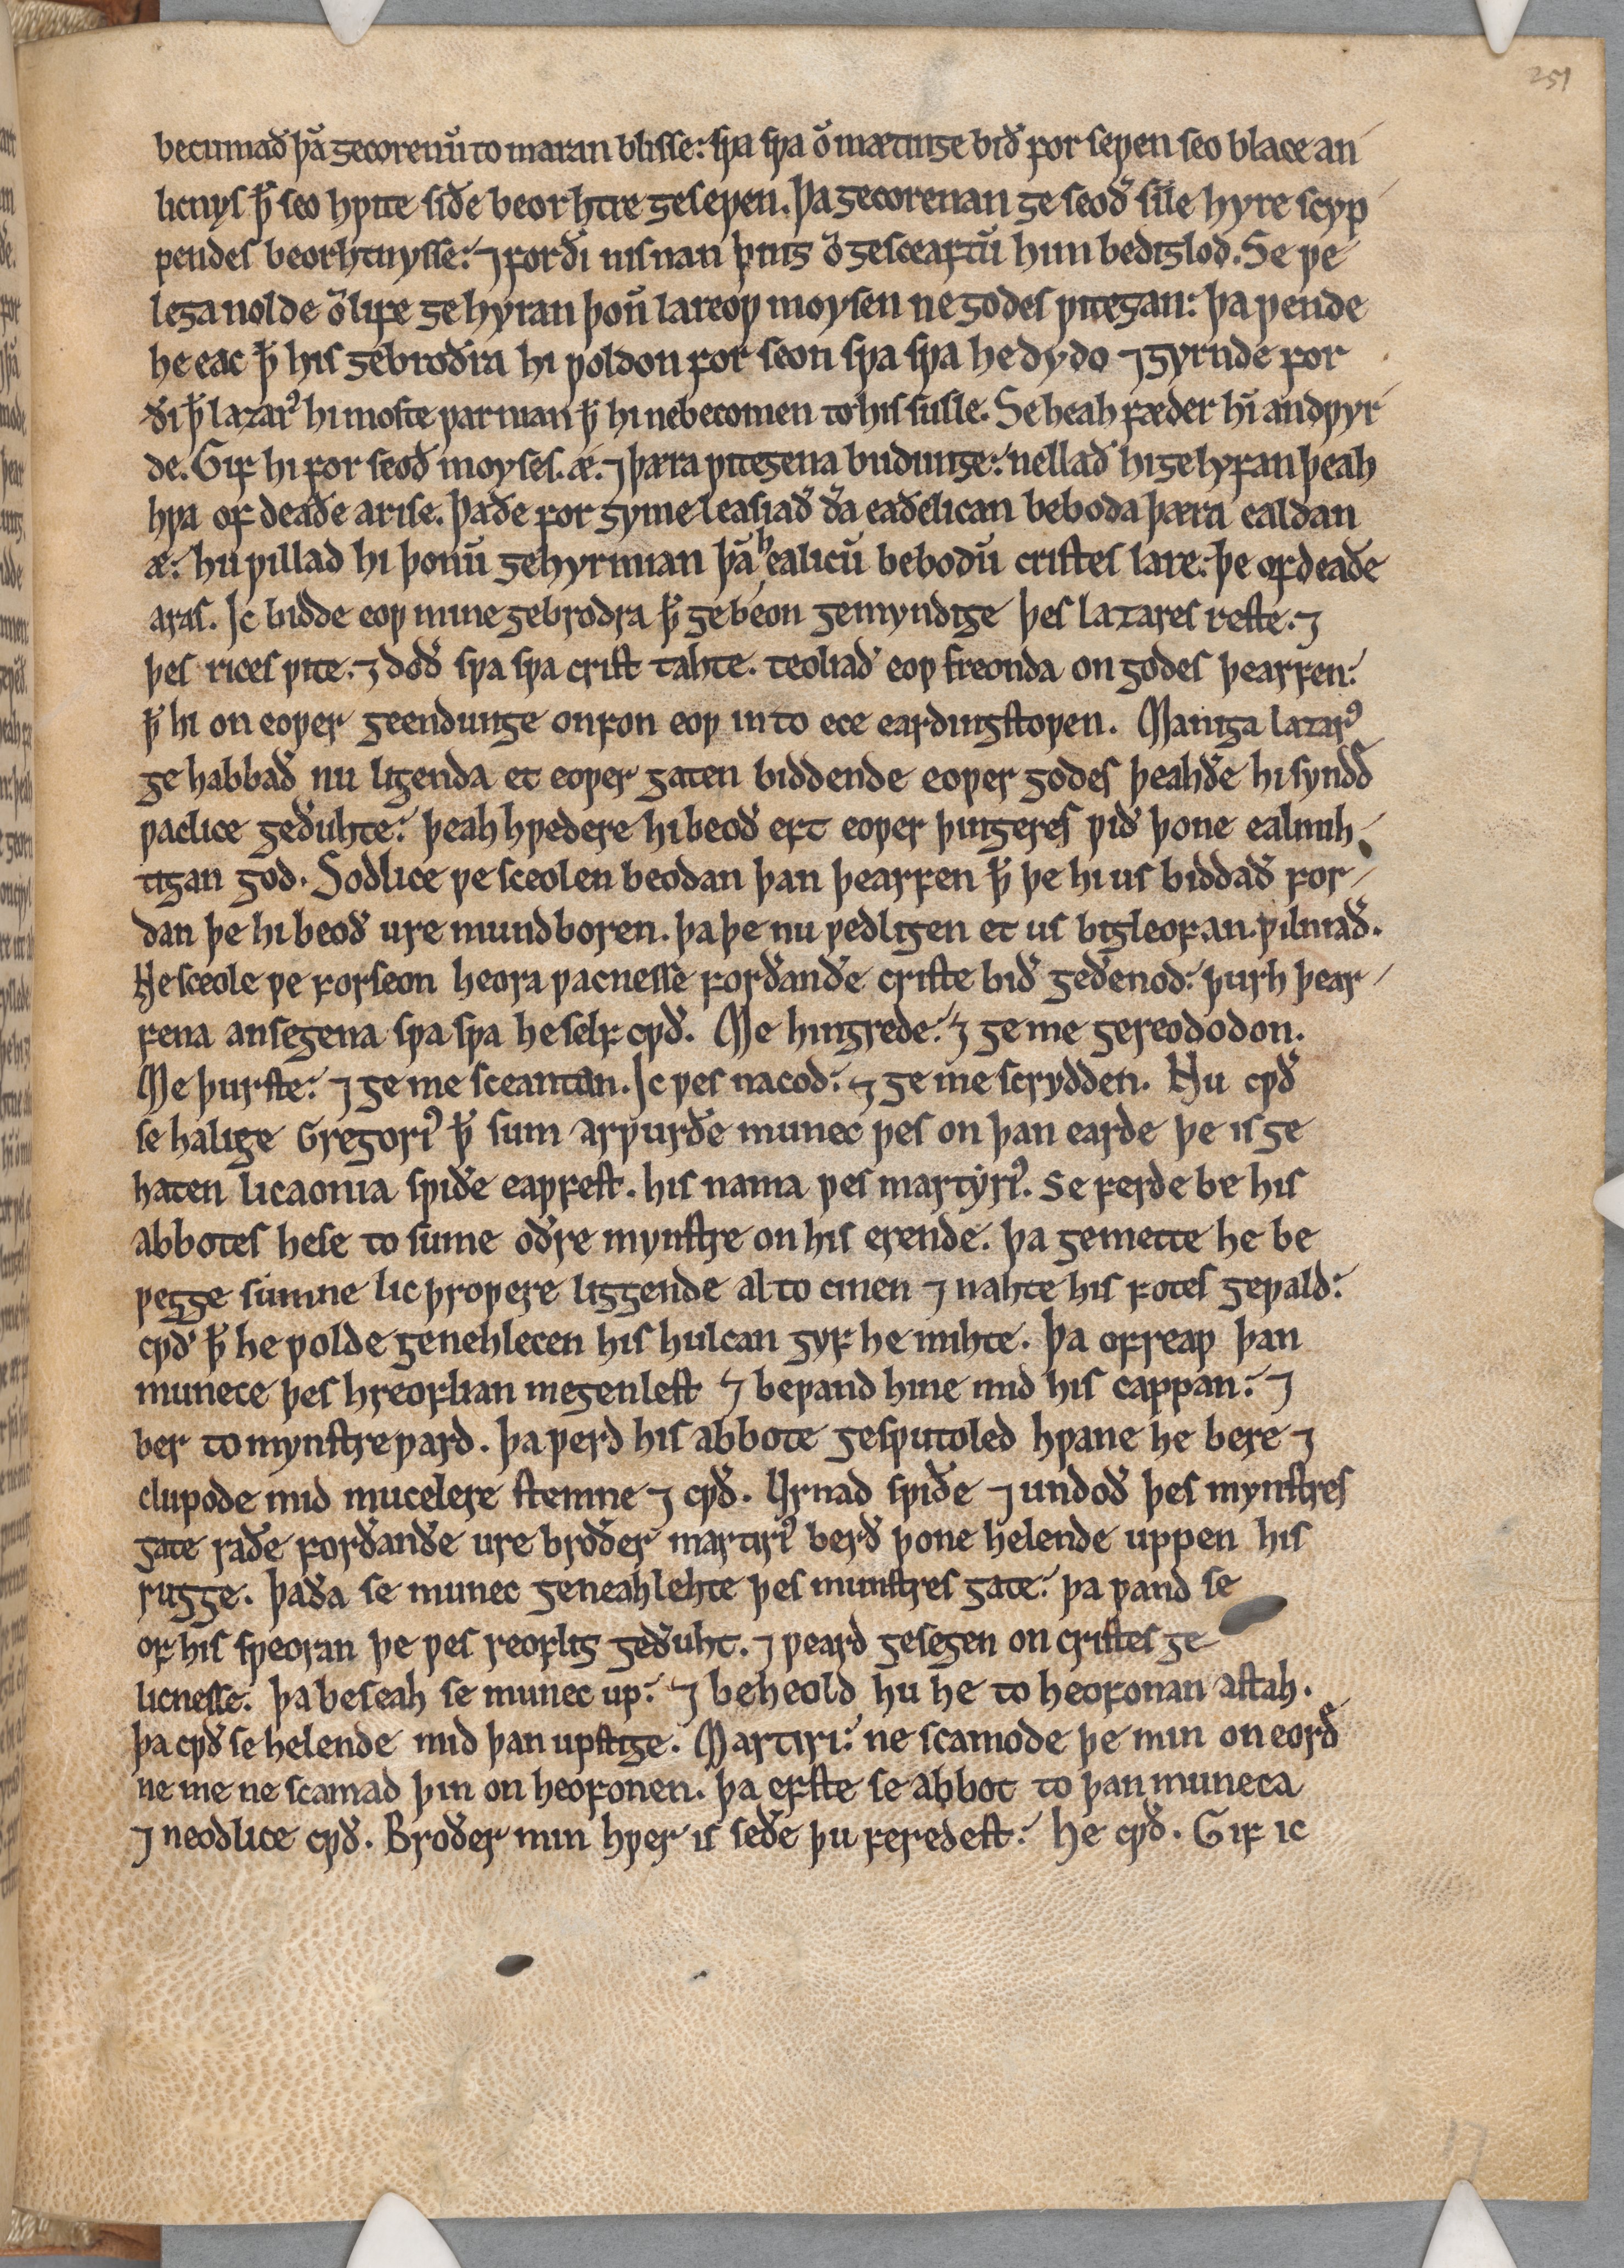 251
becumað þā gecorenū to maran blisse: spa spa ō mætinge bið for sepen seo blace an
licnys ꝥ seo hpite siðe beorhtre gesepen. Þa gecorenan geseoð sile hyre scyp
pendes beorhtnysse: ⁊ forði nis nan þing ō gesceaftū him bediglod. Se pe
lega nolde ō life gehyran þoū lareop moysen ne godes pitegan: þa pende
he eac ꝥ his gebroðra hi poldon for seon spa spa he dydo ⁊ gyrnde for
ði ꝥ lazarꝰ hi moste parman ꝥ hi ne becomen to his susle. Se heahfæder hī andpyr
de. Gif hi for seoð moyses. æ. ⁊ þæra pitegena budunge: nellað hi gehyfan þeah
hpa of deaðe arise. Þa ðe for gymeleasiað ða eaðelican beboda þæra ealdan
æ: hu pillad hi þonū gehyrmian þā healicū bebodū cristes lare: þe of deaðe
aras. Ic bidde eop mine gebrodra ꝥ ge beon gemyndige þes lazares reste. ⁊
þes rices pite. ⁊ doð spa spa crist tahte. teoliað eop freonda on godes þearfen:
ꝥ hi on eoper geendunge onfon eop in to ece eardingstopen. Maniga lazarꝰ
ge habbað nu ligenda et eoper gaten biddende eoper godes þeahðe hi syndð
paclice geðuhte: þeah hpedere hi beoð eft eoper þingeres pið þone ealmih
tigan god. Sodlice pe sceolen beodan þan þearfen ꝥ þe hi us biddað for
dan þe hi beoð ure mundboren. þa þe nu pedligen et us bigleofan pilniað.
Ne sceole pe forseon heora pacnesse forðanðe criste bið geðenod: þurh þear
fena ansegena spa spa he self cpð. Me hingrede: ⁊ ge me gereododon.
Me þurste: ⁊ ge me sceantan. Ic pes nacod: ⁊ ge me scrydden. Nu cpð
se halige Gregoriꝰ ꝥ sum arpurðe munec pes on þan earde þe is ge
haten licaonia spiðe eapfest. his nama pes martyriꝰ. Se ferde be his
abbotes hese to sume oðre mynstre on his erende. þa gemette he be
pegge sumne lic þropere liggende al to cinen ⁊ nahte his fotes gepald:
cpð ꝥ he polde genehlecen his hulcan gyf he mihte. Þa ofreap þan
munece þes hreoflian megenlest ⁊ bepand hine mid his cappan: ⁊
ber to mynstre pard. þa perd his abbote gesputoled hpane he bere ⁊
clupode mid mucelere stemne ⁊ cpð. Yrnad spiðe ⁊ undoð þes mynstres
gate raðe forðanðe ure broðer martiriꝰ berð þone helende uppen his
rugge. þaða se munec geneahlehte þes munstres gate: þa pand se
of his speoran þe pes reoflig geðuht. ⁊ peard gesegen on cristes ge
licnesse. þa beseah se munec up: ⁊ beheold hu he to heofonan astah.
þa cpð se helende mid þan upstige. Martiri: ne scamode þe min on eorð
ne me ne scamad þin on heofonen. þa efste se abbot to þan muneca
⁊ neodlice cpð. Broðer min hper is seðe þu feredest: He cpð. Gif ic